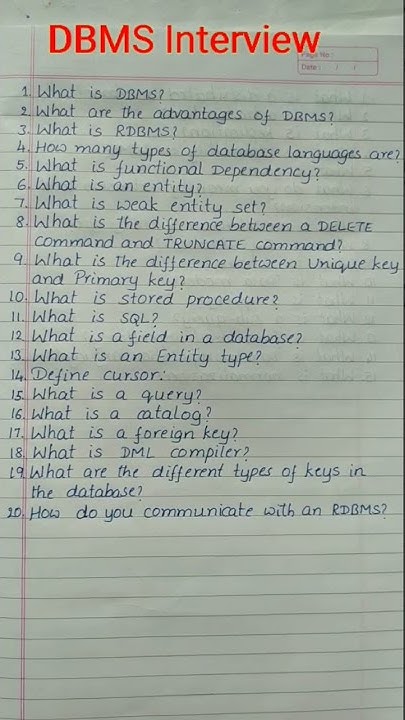 DBMS Interview
Page No:
Date: / /
1. What is DBMS?
2. What are the advantages of DBMS?
3. What is RDBMS?
4. How many types of database languages are?
5. What is functional Dependency?
6. What is an entity?
7. What is weak entity set?
8. What is the difference between a DELETE
command and TRUNCATE command?
9. What is the difference between Unique key
and Primary key?
10. What is stored procedure?
11. What is SQL?
12. What is a field in a database?
13. What is an Entity type?
14. Define cursor:
15. What is a query?
16. What is a catalog?
17. What is a foreign key?
18. What is DML compiler?
19. What are the different types of keys in
the database?
20. How do you communicate with an RDBMS?